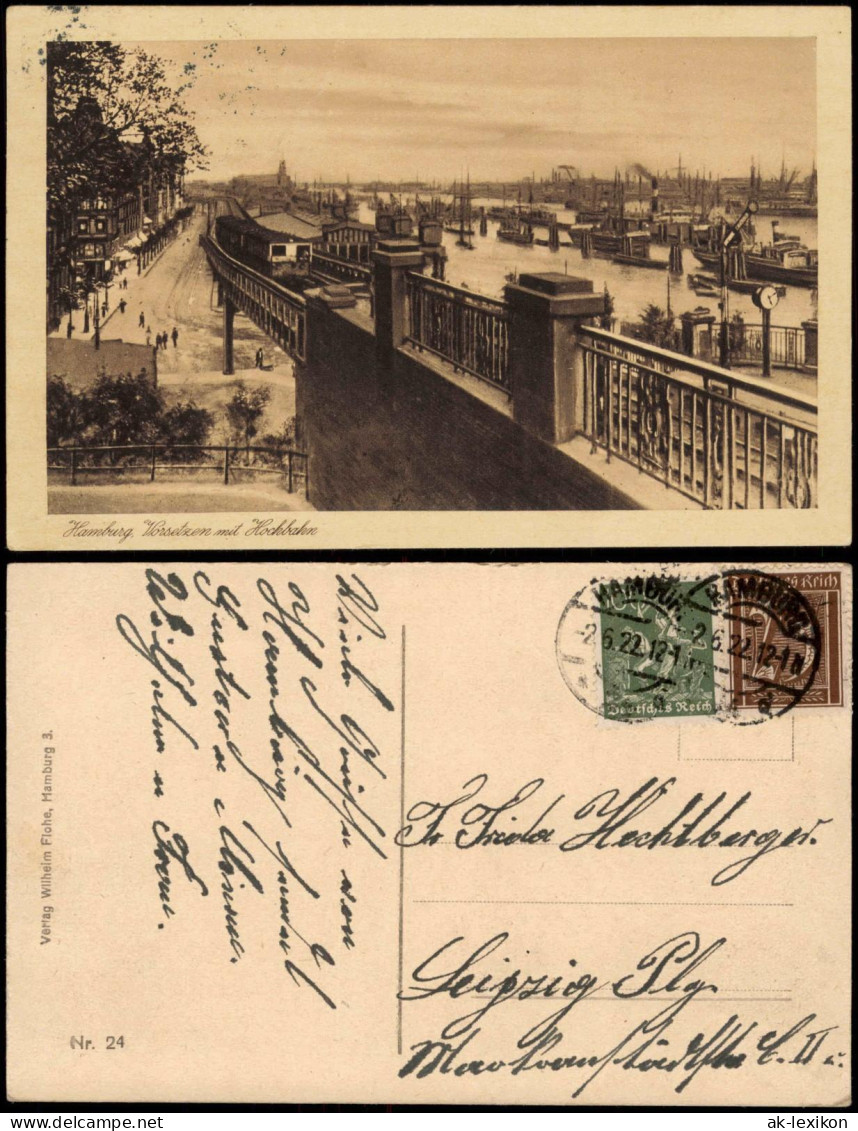 Hamburg, Vorsetzen mit Hochbahn
Viele Grüße von
Hamburg sendet
Gustav u Minna.
Wilhelm u Frau.
Verlag Wilhelm Flohe, Hamburg 3.
Nr. 24
HAMBURG
-2.6.22.12-1
Deutsches Reich
HAMBURG
-2.6.22.12-1N
Reich
75
Fr Frieda Hechtberger.
Leipzig Plg.
Markranstädtstr 6. II r.
ak-lexikon